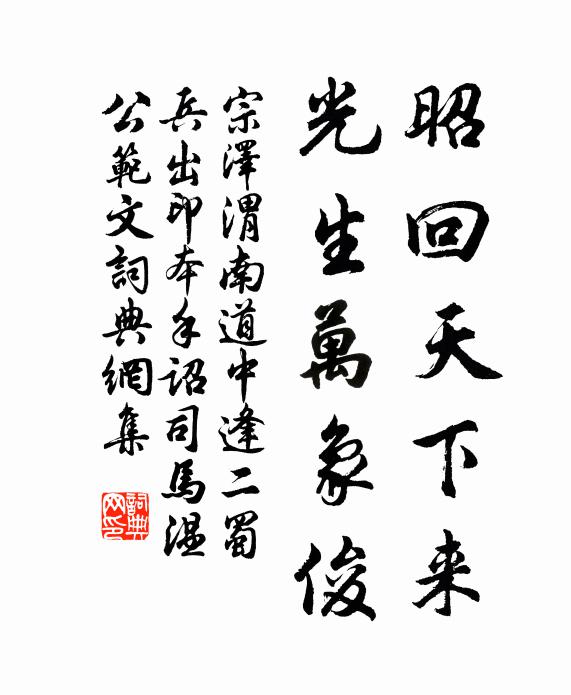 昭回天下来
光生萬象俊
宗澤渭南道中逢二蜀
兵出印本手詔司馬温
公範文詞典網集
詞典
网印